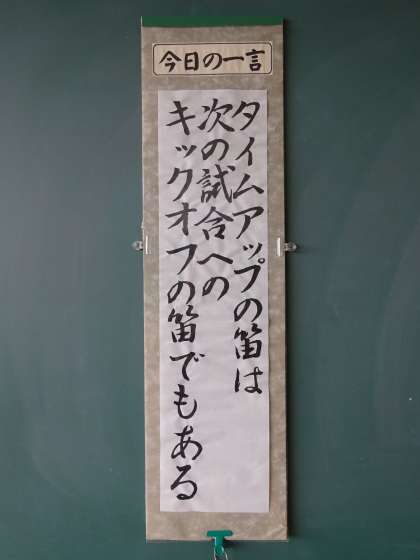 今日の一言
タイムアップの笛は
次の試合への
キックオフの笛でもある